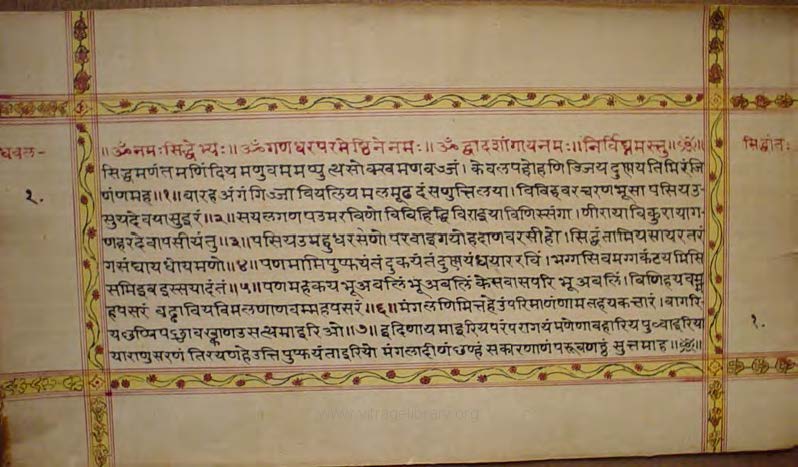 धवल-
॥ॐ नमः सिद्धेभ्यः॥ ॐ गणधरपरमेष्ठिने नमः॥ ॐ द्वादशांगाय नमः॥ निर्विघ्नमस्तु॥
सिद्धांतः
सिद्धमणंतमणिंदियमणुवममप्पुत्थसोक्खमणवज्जं। केवलपहोहणिज्जियदुण्णयतिमिरंजि
१.
णंणमह॥१॥ बारहअंगंगिज्जा वियलियमलमूढदंसणुत्तिलया। विविहवरचरणभूसा पसियउ
सुयदेवयासुइरं॥२॥ सयलगणपउमरविणो विविहिद्धिविराइया विणिस्संगा। णीराया विकुराया ग-
णहरदेवा पसीयंतु॥३॥ पसियउ महु धरसेणो परवाइगयोहदाणवरसीहो। सिद्धंतामियसायरतरं
गसंघायधोयमणो॥४॥ पणमामि पुप्फयंतं दुकयंतं दुण्णयंधयाररविं। भग्गसिवमग्गकंटयमिसि
समिइवइं सया दंतं॥५॥ पणमह कयभूअबलिं भूअबलिं केसवासपरिभूअबलिं। विणिहयवम्म
हपसरं वड्ढावियविमलणाणवम्महपसरं॥६॥ मंगलणिमित्तहेउं परिमाणं णाम तह य कत्तारं। वागरि
य छप्पि पच्छा वक्खाणउ सत्थमाइरिओ॥७॥ इदि णायमाइरियपरंपरागयं मणेणावहारिय पुव्वाइरिया
१.
याराणुसरणं तिरयणहेउत्ति पुप्फयंताइरियो मंगलादीणं छण्हं सकारणाणं परूवणट्ठं सुत्तमाह॥
www.vitragelibrary.org